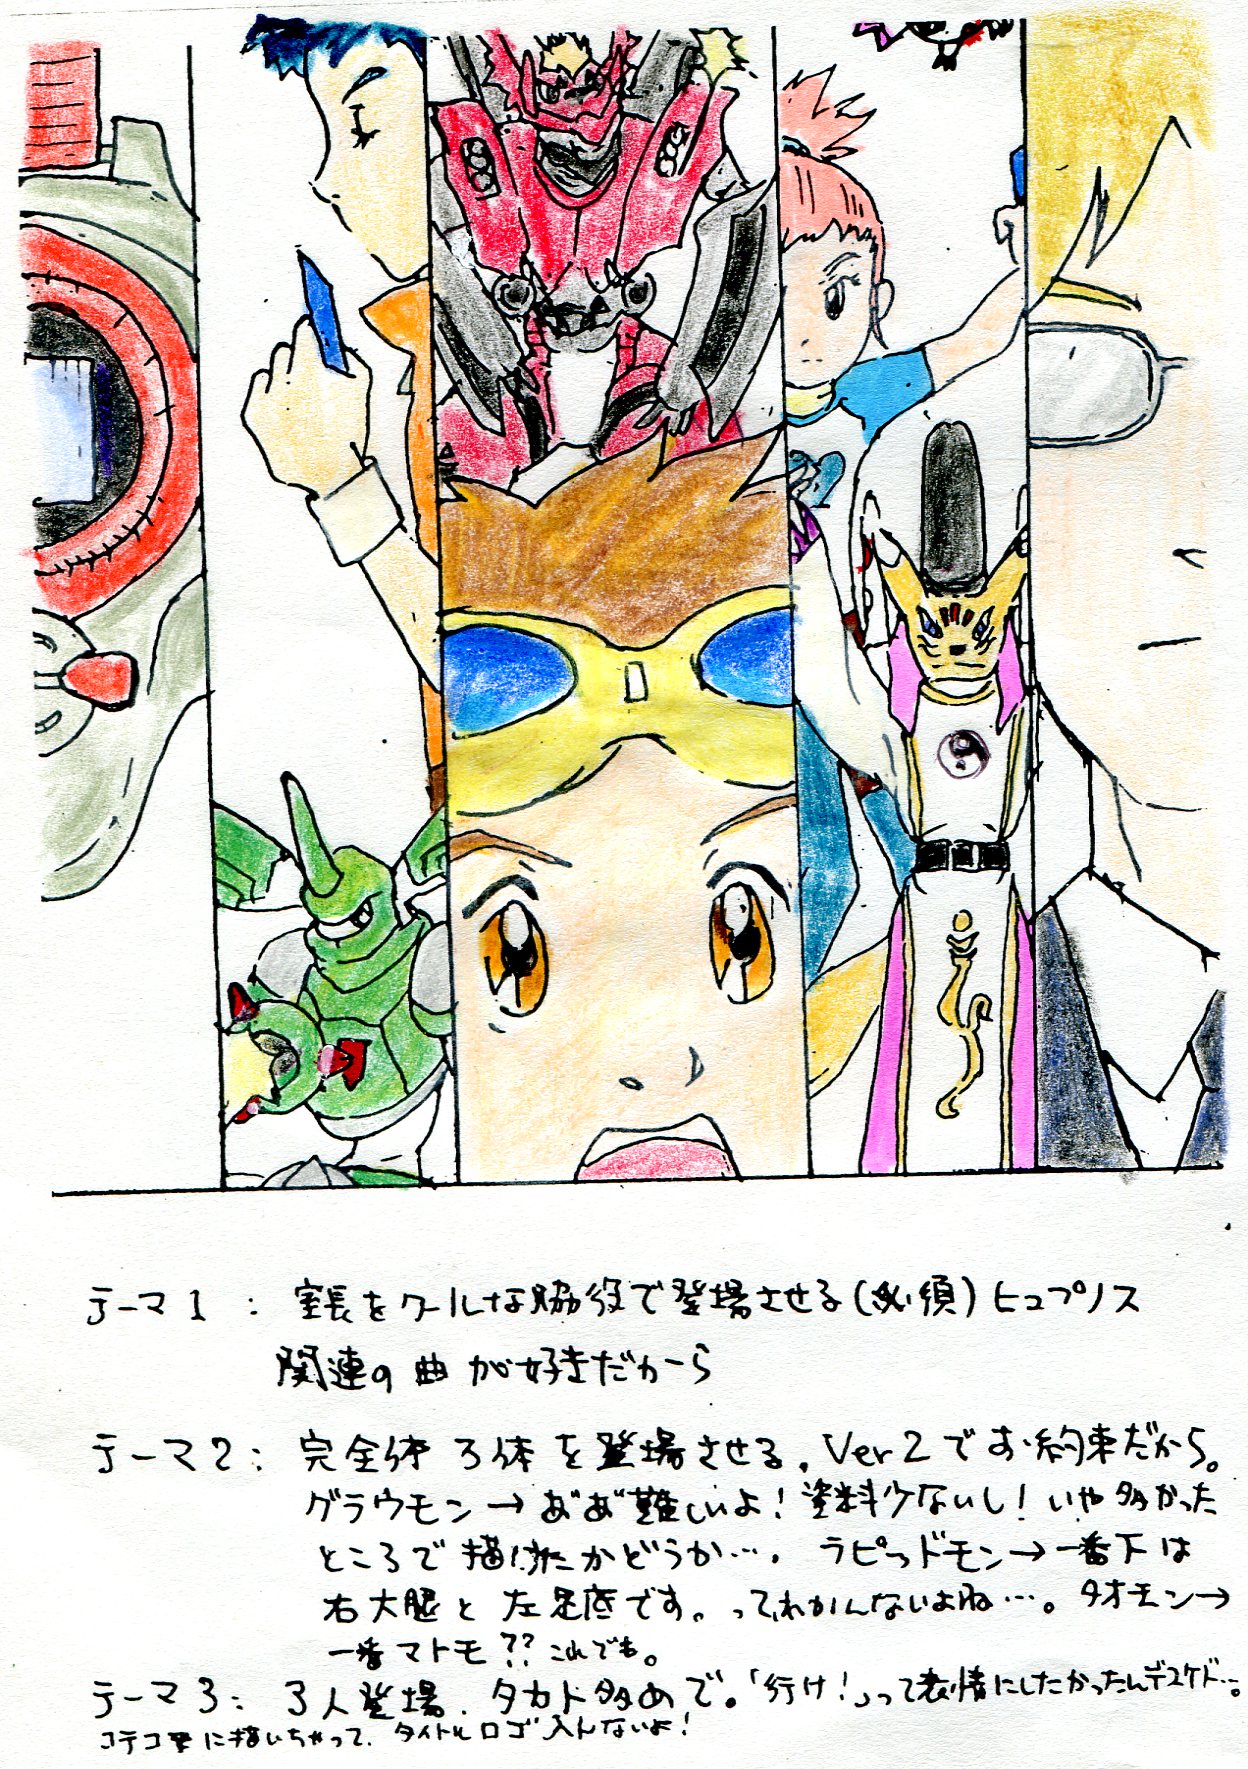 テーマ1: 室長をクールな脇役で登場させる(必須)ヒュプノス
関連の曲が好きだから
テーマ2: 完全体3体を登場させる。Ver2でお約束だから。
グラウモン→ああ難しいよ!塗料少ないし!いや多かった
ところで描けたかどうか…。ラピッドモン→一番下は
右大腿と左足底です。ってわかんないよね…。タオモン→
一番マトモ??これでも。
テーマ3: 3人登場、タカト多めで。「行け!」って表情にしたかったんデスケド…。
コテコテに描いちゃって、タイトルロゴ入んないよ!